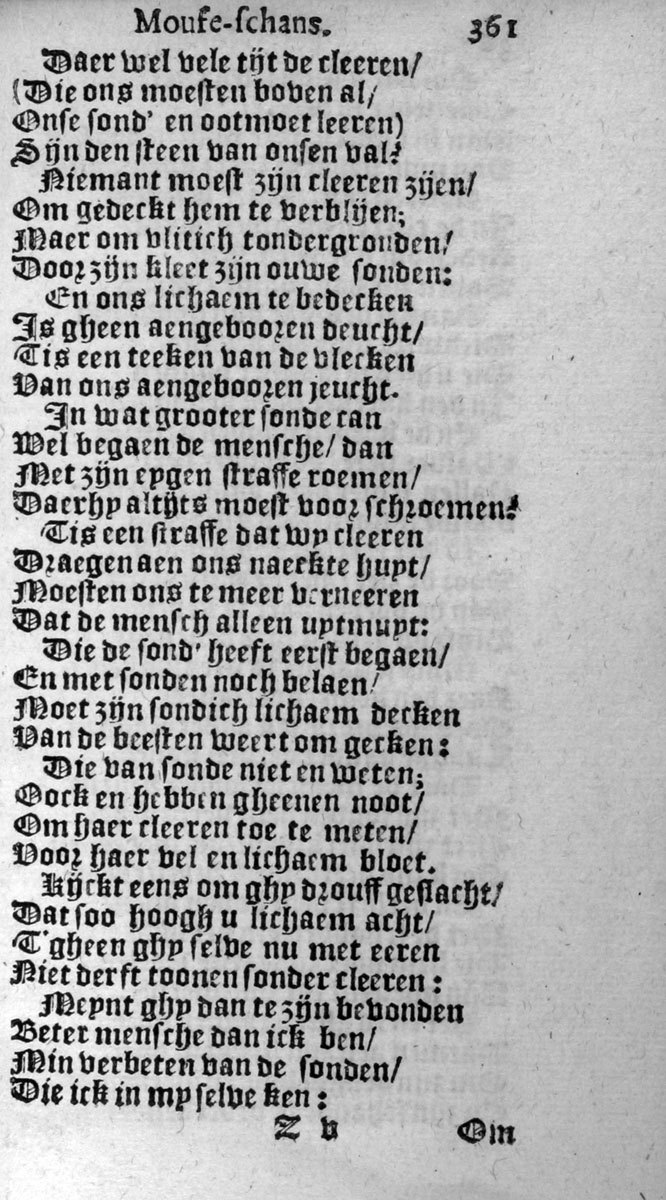 Mouse-schans. 361
Daer wel vele tijt de cleeren/
(Die ons moesten boven al/
Onse sond' en ootmoet leeren)
Sijn den steen van onsen val!
Niemant moest zijn cleeren zijen/
Om gedeckt hem te verblijen;
Maer om vlitich tondergronden/
Door zijn kleet zijn ouwe sonden:
En ons lichaem te bedecken
Is gheen aengebooren deucht/
Tis een teeken van de vlecken
Van ons aengebooren jeucht.
In wat grooter sonde can
Wel begaen de mensche/ dan
Met zijn eygen straffe roemen/
Daerhy altijts moest voor schroemen!
Tis een straffe dat wy cleeren
Draegen aen ons naeckte huyt/
Moesten ons te meer verneeren
Dat de mensch alleen uytmuyt:
Die de sond' heeft eerst begaen/
En met sonden noch belaen/
Moet zijn sondich lichaem decken
Van de beesten weert om gecken:
Die van sonde niet en weten;
Oock en hebben gheenen noot/
Om haer cleeren toe te meten/
Voor haer vel en lichaem bloet.
Kijckt eens om ghy drouff geslacht/
Dat soo hoogh u lichaem acht/
T'gheen ghy selve nu met eeren
Niet derft toonen sonder cleeren:
Meynt ghy dan te zijn bevonden
Beter mensche dan ick ben/
Min verbeten van de sonden/
Die ick in my selve ken:
Z v Om